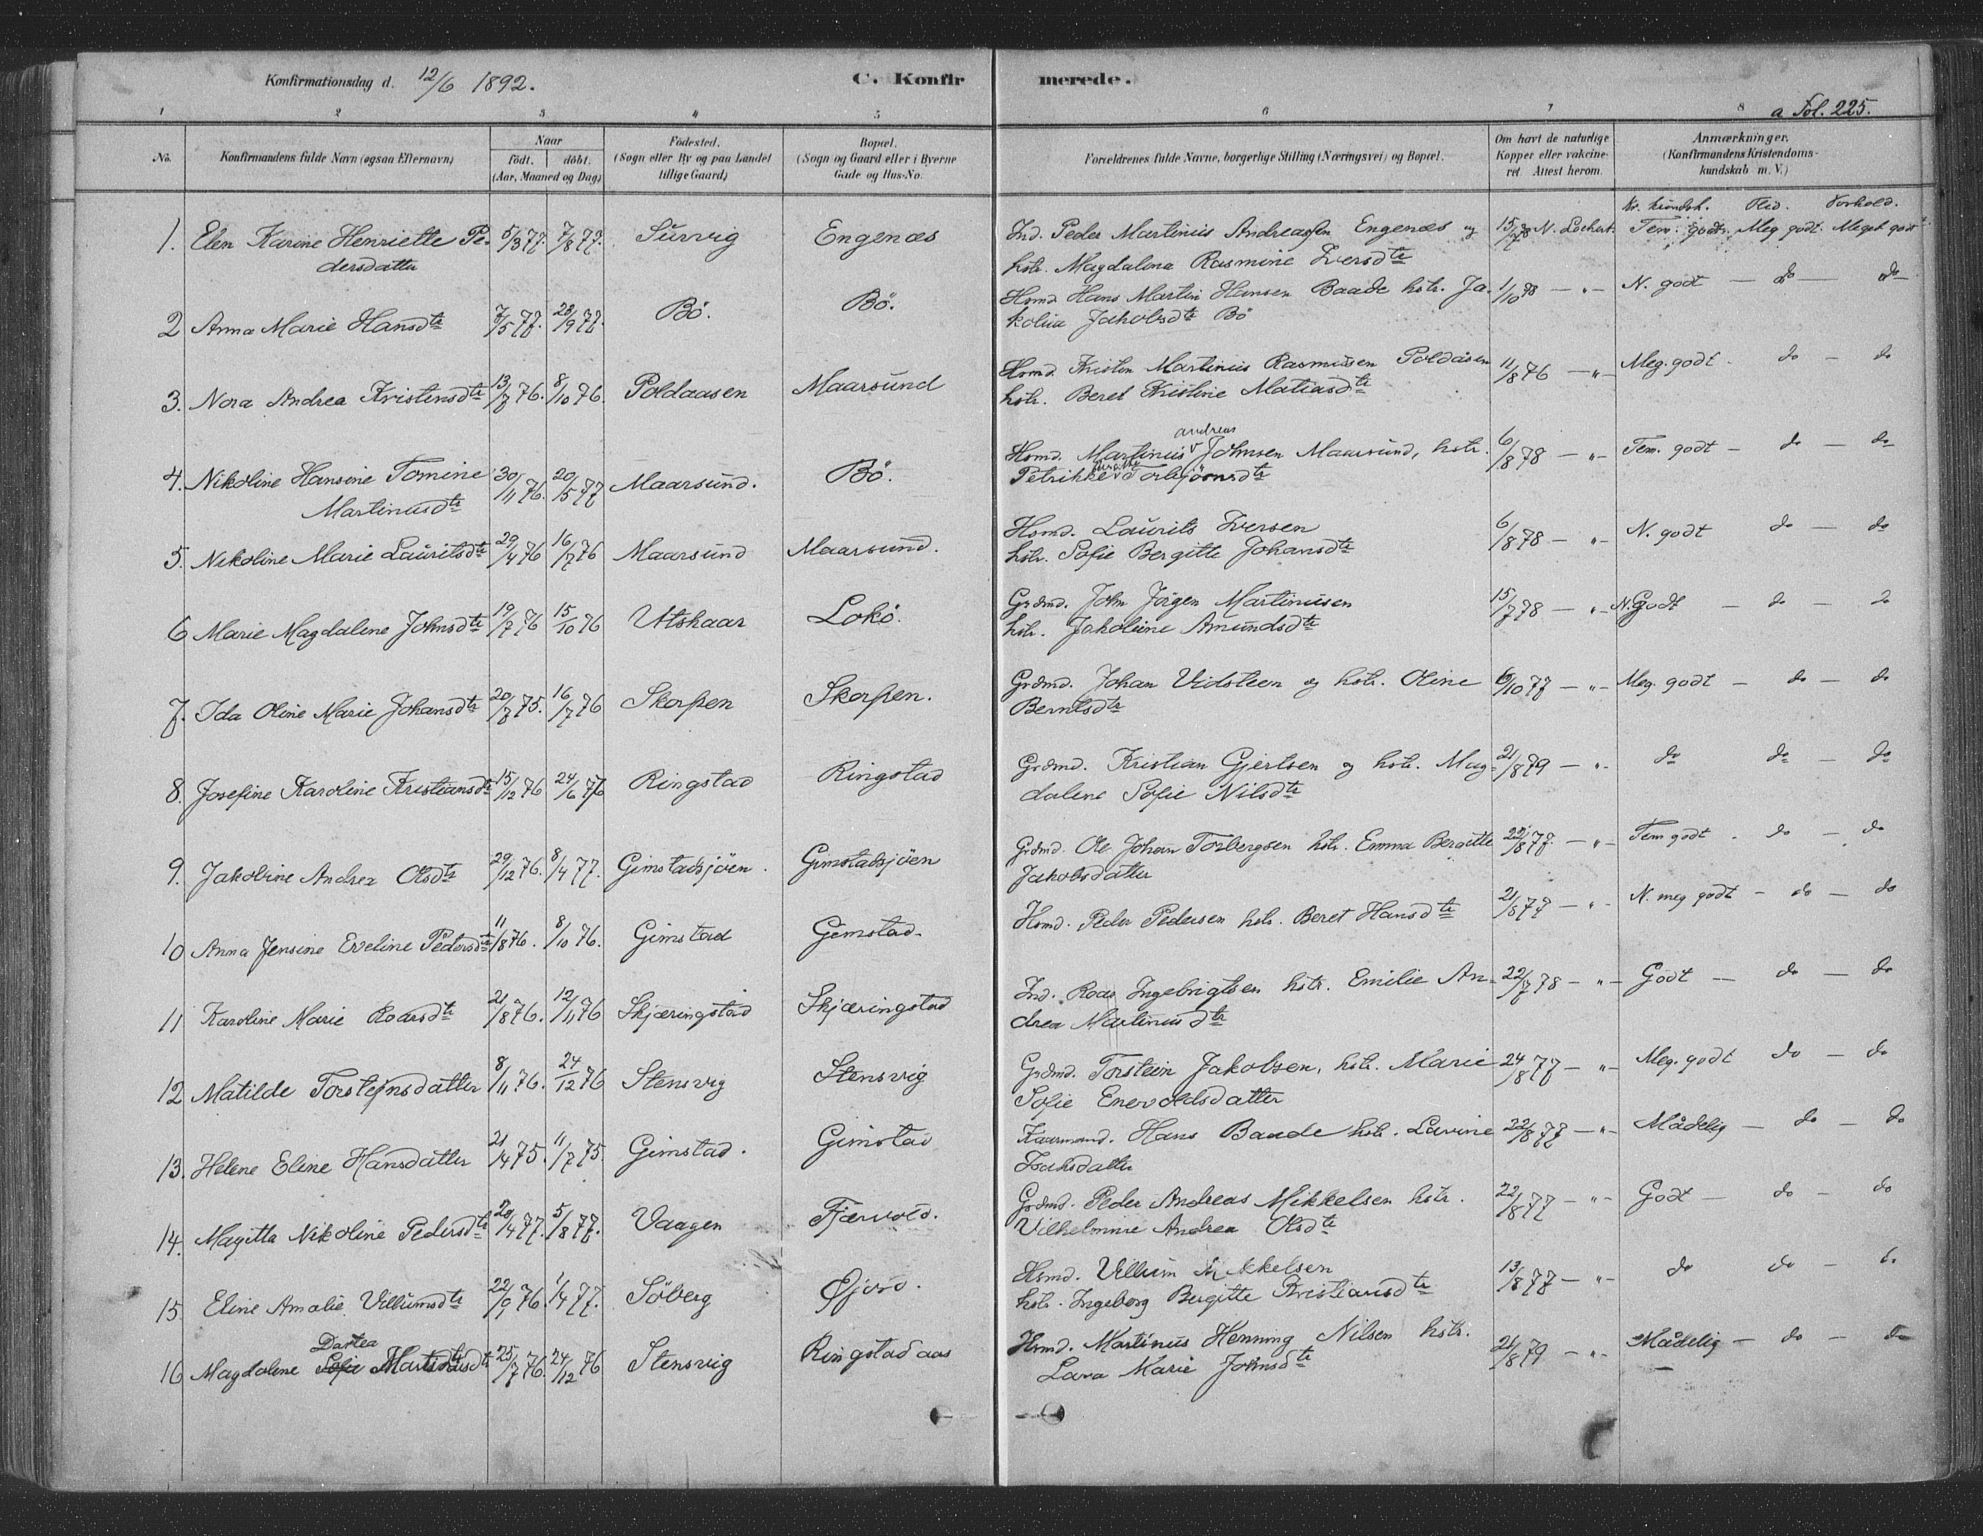 Konfirmationsdag d. 12/6 1892.
C. Konfir merede.
a Fol. 225.
1 2 3 4 5 6 7 8
No. Konfirmandens fulde Navn (ogsaa Efternavn) Naar født. døbt. (Aar, Maaned og Dag) Fødested. (Sogn eller By og paa Landet tillige Gaard) Bopæl. (Sogn og Gaard eller i Byerne Gade og Hus-No. Forældrenes fulde Navne, borgerlige Stilling (Næringsvei) og Bopæl. Om havt de naturlige Kopper eller vakcineret. Attest herom. Anmærkninger. (Konfirmandens Kristendomskundskab m. V.)
Kr. kundsk. Flid. Forhold.
1. Elen Karine Henriette Pe- 5/3 77. 7/8 77. Survig Engenæs Ind. Peder Martinius Andreassen Engenæs og 15/7 78 N. Lochert. Tem. godt. Meg godt. Meget godt
dersdatter hstr. Magdalena Rasmine Iversdtr
2 Anna Marie Hansdtr 7/5 77. 23/9 77. Bö. Bö. Hsmd. Hans Martin Hansen Baade hstr. Ja- 1/10 78 — " — N. godt — do — do
kolia Jakobsdtr Bö
3. Nora Andrea Kristensdtr 13/8 76. 8/10 76. Poldaasen Maarsund Hsmd. Kristen Martinius Rasmussen Poldåsen 11/8 76 — " — Meg. godt. do — do
hstr. Beret Kristine Matiasdtr
andreas
4. Nikoline Hansine Tomine 30/11 76. 20/5 77 Maarsund. Bö. Hsmd. Martinius Johnsen Maarsund, hstr. 6/8 78 — " — Tem. godt — do — do
Martinusdtr Petrikke Torbjörnsdtr
5. Nikoline Marie Lauritsdtr 29/4 76 16/7 76 Maarsund Maarsund. Hsmd. Laurits Iversen 6/8 78 — " — N. godt do — do
hstr. Sofie Bergitte Johansdtr
6 Marie Magdalene Johnsdtr 19/7 76 15/10 76 Utskaar Lokö. Grdmd. John Jörgen Martinusen 15/7 78 — " — N. Godt — do — do
hstr. Jakobine Amundsdtr
7. Ida Oline Marie Johansdtr 20/8 75. 16/7 76 Skorpen Skorpen. Grdmd. Johan Vidsteen og hstr. Oline 6/10 77 — " — Meg. godt — do — do
Berntsdtr
8. Josefine Karoline Kristiansdtr 15/12 76 24/6 76 Ringstad Ringstad Grdmd. Kristian Gjertsen og hstr. Mag- 21/8 79 — " — do do — do
dalene Sofie Nilsdtr
9. Jakobine Andrea Olsdtr 29/12 76. 8/4 77. Gimstadsjöen. Gimstadsjöen Grdmd. Ole Johan Torbergsen hstr. Emma Bergitte 22/8 77. — " Tem godt. do — do
Jakobsdatter
10 Anna Jensine Eveline Pedersdtr 11/8 76. 8/10 76. Gimstad Gimstad. Hsmd. Peder Pedersen hstr. Beret Hansdtr 21/8 77 — " — N. meg godt — do — do
11 Karoline Marie Roarsdtr 21/8 76. 12/11 76 Skjæringstad Skjæringstad Ind. Roar Ingebrigtsen hstr. Emilie An- 22/7 78 — " — Godt — do — do
drea Martinusdtr
12 Matilde Torsteinsdatter 8/11 76. 24/12 76 Stensvig Stensvig Grdmd. Torstein Jakobsen, hstr. Marie 24/8 77 — " — Meg. godt do — do
Sofie Enevoldsdatter
13. Helene Eline Hansdatter 21/4 75. 11/7 75 Gimstad. Gimstad Kaarmand. Hans Baade hstr. Lavine 22/8 77 — " — Mådelig — do — do
Isaksdatter
14. Magitta Nikoline Pedersdtr 20/4 77. 5/8 77. Vaagen Fjærvold. Grdmd. Peder Andreas Mikkelsen hstr. 22/8 77 — " — Godt — do — do
Vilhelmine Andrea Olsdtr
15 Eline Amalie Villumsdtr 22/9 76. 1/4 77. Söberg Øjord. Hsmd. Villum Mikkelsen 13/8 77 — " — do do — do
hstr. Ingeborg Bergitte Kristiansdtr
Dortea
16 Magdalene Sofie Martinusdtr 25/7 76. 24/12 76 Stensvig Ringstadaas Hsmd. Martinus Henning Nilsen hstr. 21/8 79 — " — Mådelig — do — do
Lava Marie Johnsdtr